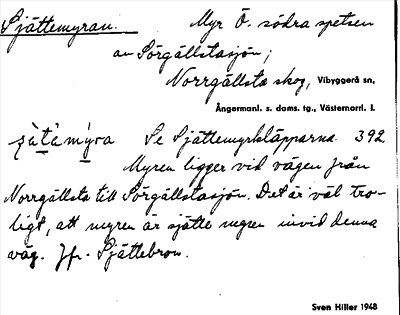 Sjättemyran. Myr Ö. södra spetsen
av Sörgällstasjön;
Norrgällsta skog, Vibyggerå sn,
Ångermanl. s. doms. tg., Västernorrl. l.
Se Sjättemyrkläpparna 392.
Myren ligger vid vägen från
Norrgällsta till Sörgällstasjön. Det är väl tro-
ligt, att myren är sjätte myren invid denna
väg. Jfr. Sjättebron.
Sven Hiller 1948